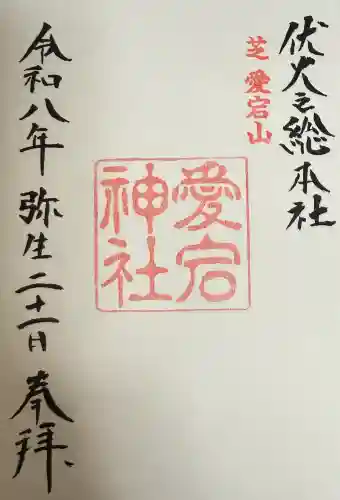 伏火之総本社
芝 愛宕山
愛宕
神社
令和八年 弥生二十一日 奉拝